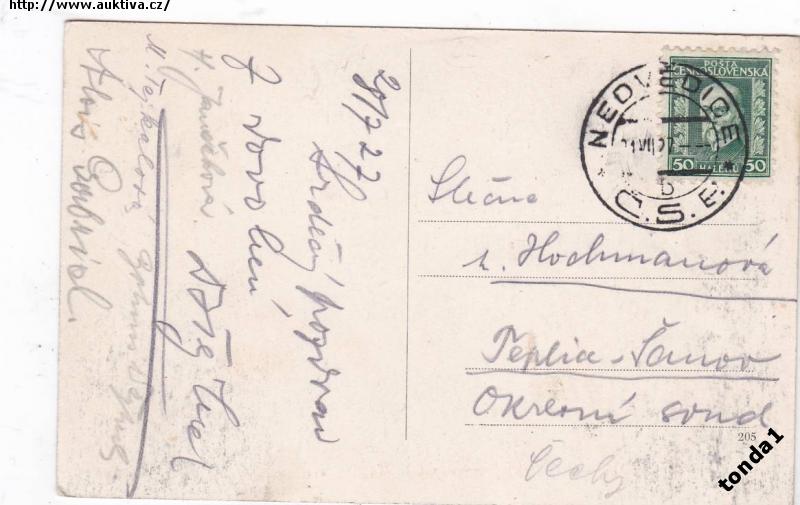 http://www.auktiva.cz/
20/7 27
Srdečný pozdrav
z dovolené
H. Janečková
M. Tejkalová
Alois Gabriel.
POŠTA
ČESKOSLOVENSKÁ
50 HALÉŘŮ 50
NEDVĚDICE
VII 27
* b *
Č.S.E.
Slečna
Hochmanová
Teplice-Šanov
Okresní soud
Čechy
205
tonda1